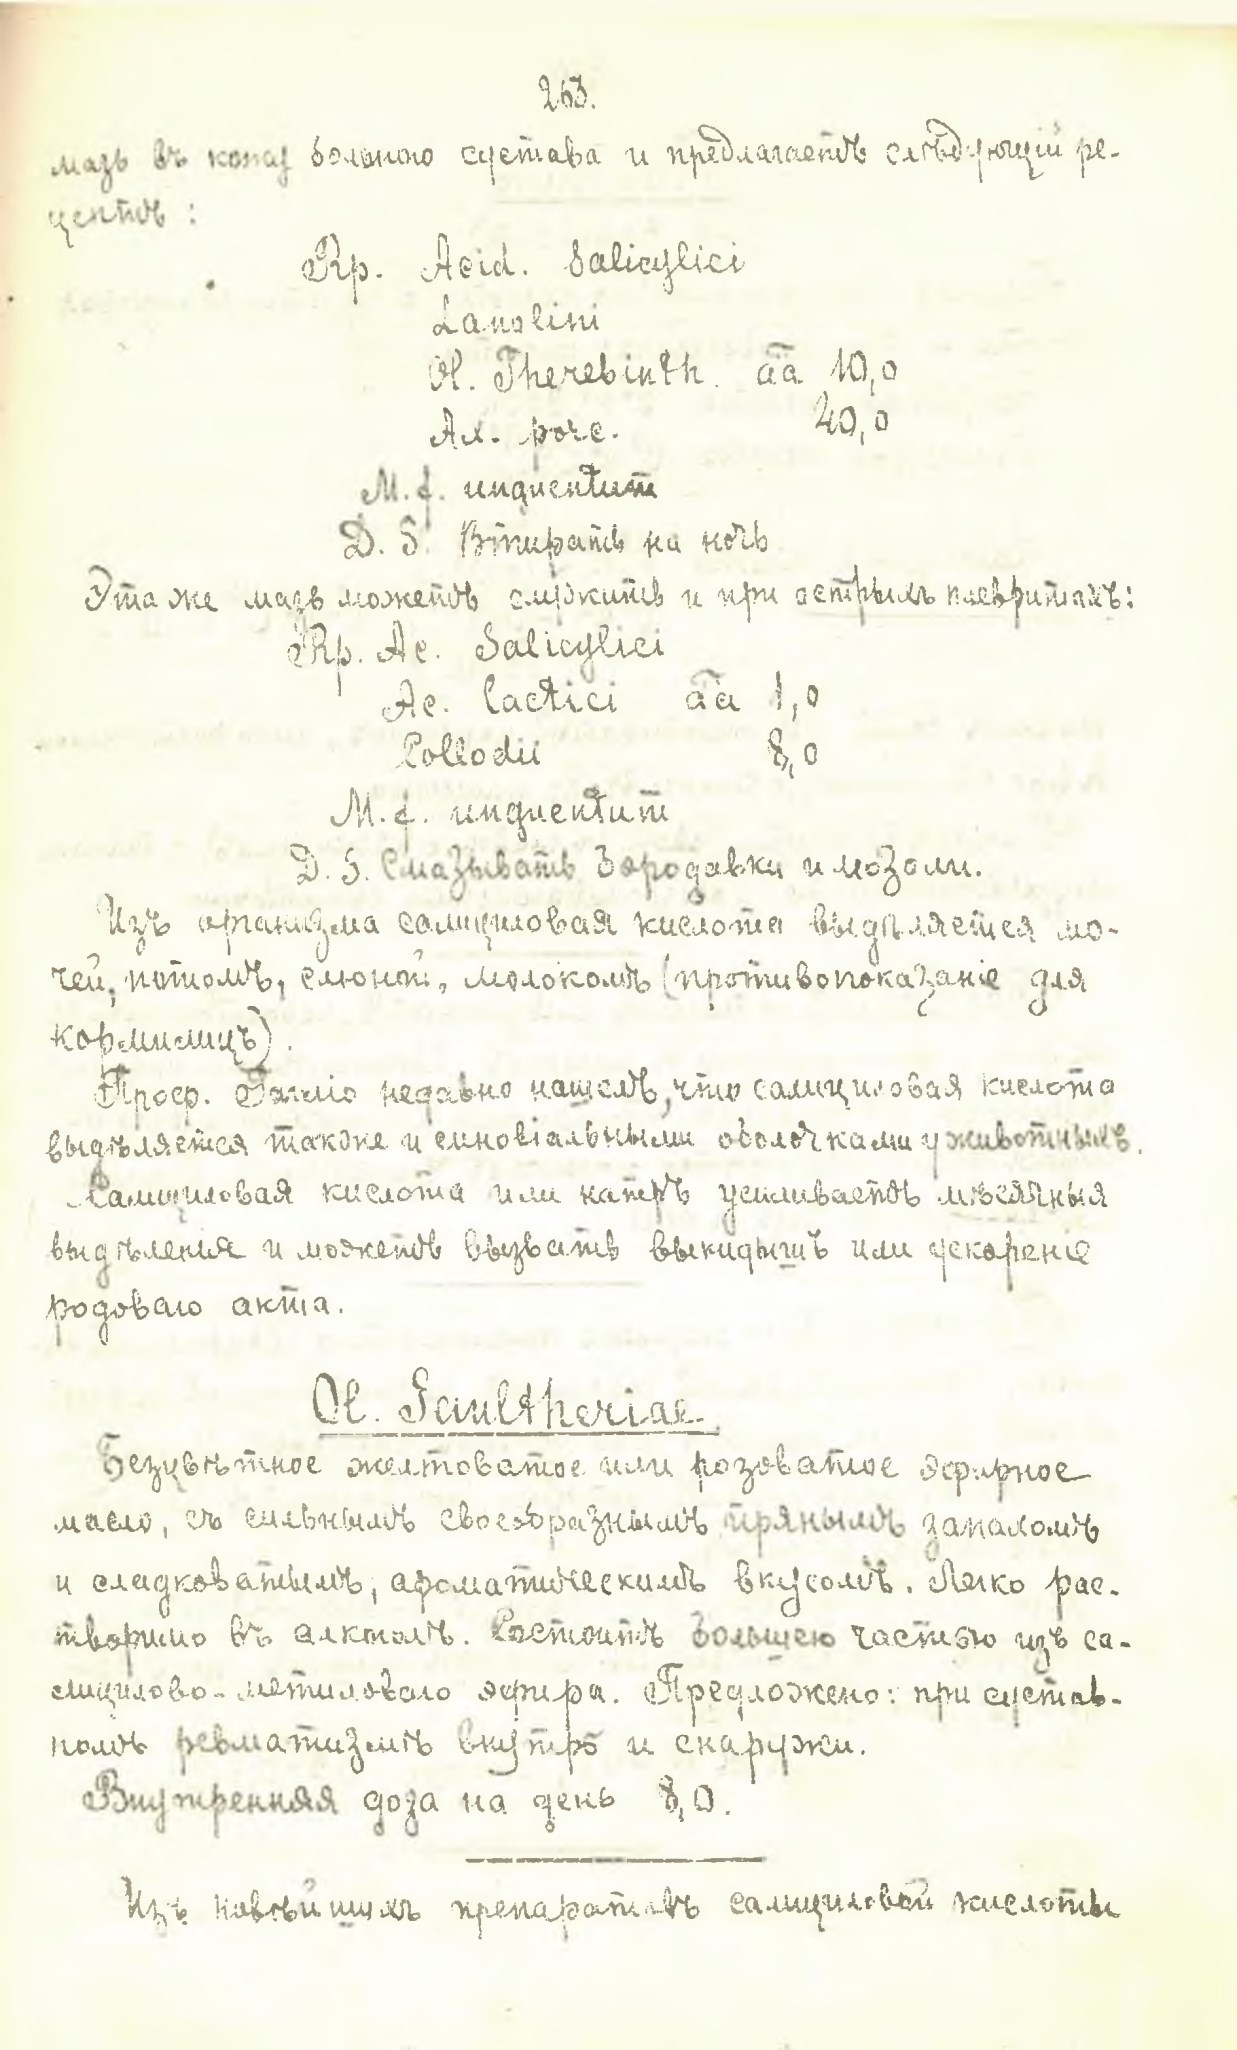 263.
мазь въ кожу больного сустава и предлагаетъ слѣдующій ре-
цептъ:
Rp. Acid. Salicylici
Lanolini
Ol. Therebinth. āā 10,0
Ax. porc. 40,0
M. f. unguentum
D. S. Втирать на ночь
Эта же мазь можетъ служить и при острыхъ плевритахъ:
Rp. Ac. Salicylici
Ac. lactici āā 1,0
Collodii 8,0
M. f. unguentum
D. S. Смазывать бородавки и мозоли.
Изъ организма салициловая кислота выдѣляется мо-
чей, потомъ, слюной, молокомъ (противопоказаніе для
кормилицъ).
Проф. недавно нашелъ, что салициловая кислота
выдѣляется также и синовіальными оболочками у животныхъ.
Салициловая кислота или натръ усиливаетъ мѣсячныя
выдѣленія и можетъ вызвать выкидышъ или ускореніе
родоваго акта.
Ol. Gaultheriae.
Безцвѣтное желтоватое или розоватое эфирное
масло, съ сильнымъ своеобразнымъ прянымъ запахомъ
и сладковатымъ, ароматическимъ вкусомъ. Легко рас-
творимо въ алкголѣ. Состоитъ большею частью изъ са-
лицилово-метиловаго эфира. Предложено: при сустав-
номъ ревматизмѣ внутрь и снаружи.
Внутренняя доза на день 8,0.
Изъ новѣйшихъ препаратовъ салициловой кислоты